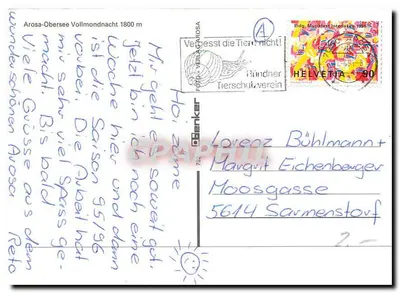 Arosa-Obersee Vollmondnacht 1800 m
Hoi zäme
Mir geht es soweit gut.
Jetzt bin ich noch eine
Woche hier und dann
ist die Saison 95/96
vorbei. Die Arbeit hat
mir sehr viel Spass ge-
macht. Bis bald
Viele Grüsse aus dem
wunderschönen Arosa
Reto
FOTO + VERLAG AROSA
Denker
A
Vergesst die Tiere nicht!
Bündner
Tierschutzverein
HELVETIA 90
Lorenz Bühlmann +
Margrit Eichenberger
Moosgasse
5614 Sarmenstorf
2.-